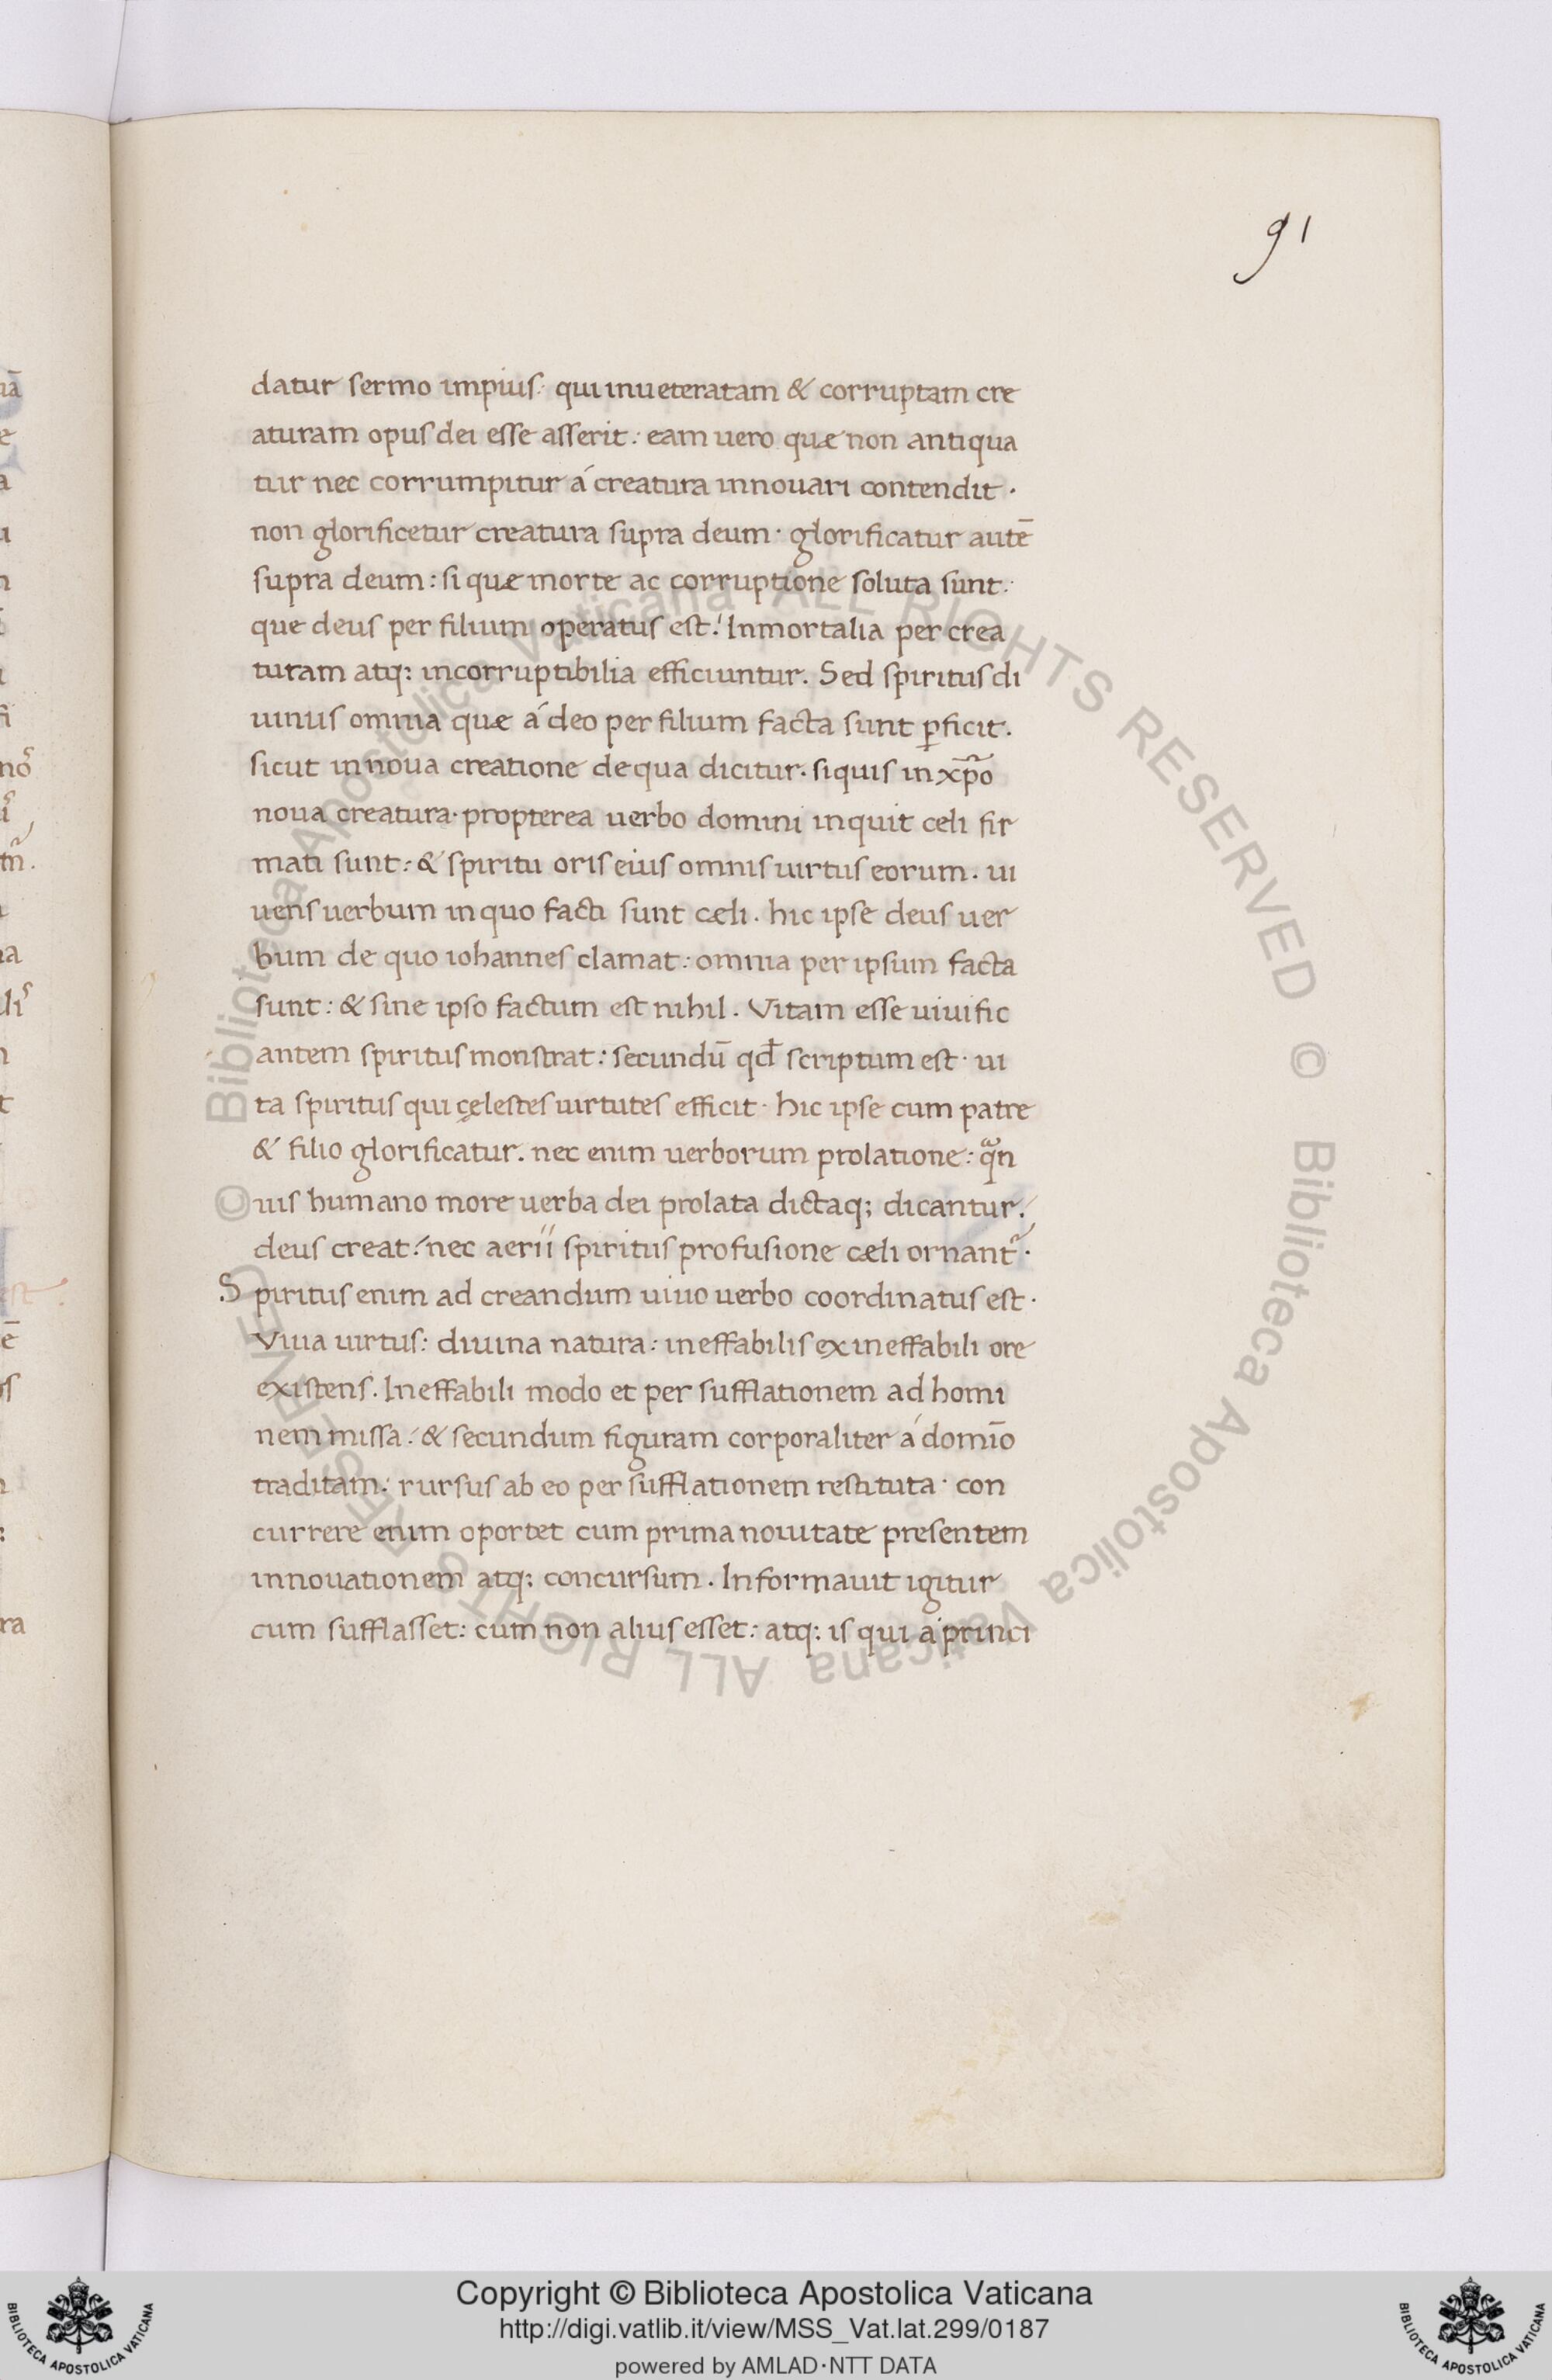 91
datur sermo impius· qui inueteratam & corruptam cre
aturam opus dei esse asserit: eam uero quæ non antiqua
tur nec corrumpitur á creatura innouari contendit·
non glorificetur creatura supra deum· glorificatur autē
supra deum: si quæ morte ac corruptione soluta sunt:
que deus per filium operatus est: Inmortalia per crea
turam atq; incorruptibilia efficiuntur. Sed spiritus di
uinus omnia quæ á deo per filium facta sunt ꝑficit.
sicut in noua creatione de qua dicitur· si quis in xp̄o
noua creatura· propterea uerbo domini inquit celi fir
mati sunt: & spiritu oris eius omnis uirtus eorum. ui
uens uerbum in quo facti sunt cæli. hic ipse deus uer
bum de quo iohannes clamat: omnia per ipsum facta
sunt: & sine ipso factum est nihil. Vitam esse uiuific
antem spiritus monstrat: secundū qđ scriptum est· ui
ta spiritus qui cęlestes uirtutes efficit· hic ipse cum patre
& filio glorificatur. nec enim uerborum prolatione: qᵃn
uis humano more uerba dei prolata dictaq; dicantur:
deus creat: nec aerii spiritus profusione cæli ornant᷑·
Spiritus enim ad creandum uiuo uerbo coordinatus est·
Viua uirtus: diuina natura: ineffabilis ex ineffabili ore
existens. Ineffabili modo et per sufflationem ad homi
nem missa: & secundum figuram corporaliter á domīo
traditam: rursus ab eo per sufflationem restituta· con
currere enim oportet cum prima nouitate presentem
innouationem atq; concursum. Informauit igitur
cum sufflasset: cum non alius esset: atq; is qui á princi
© Biblioteca Apostolica Vaticana ALL RIGHTS RESERVED © Biblioteca Apostolica Vaticana ALL RIGHTS RESERVED
Copyright © Biblioteca Apostolica Vaticana
http://digi.vatlib.it/view/MSS_Vat.lat.299/0187
powered by AMLAD·NTT DATA
BIBLIOTECA APOSTOLICA VATICANA
BIBLIOTECA APOSTOLICA VATICANA